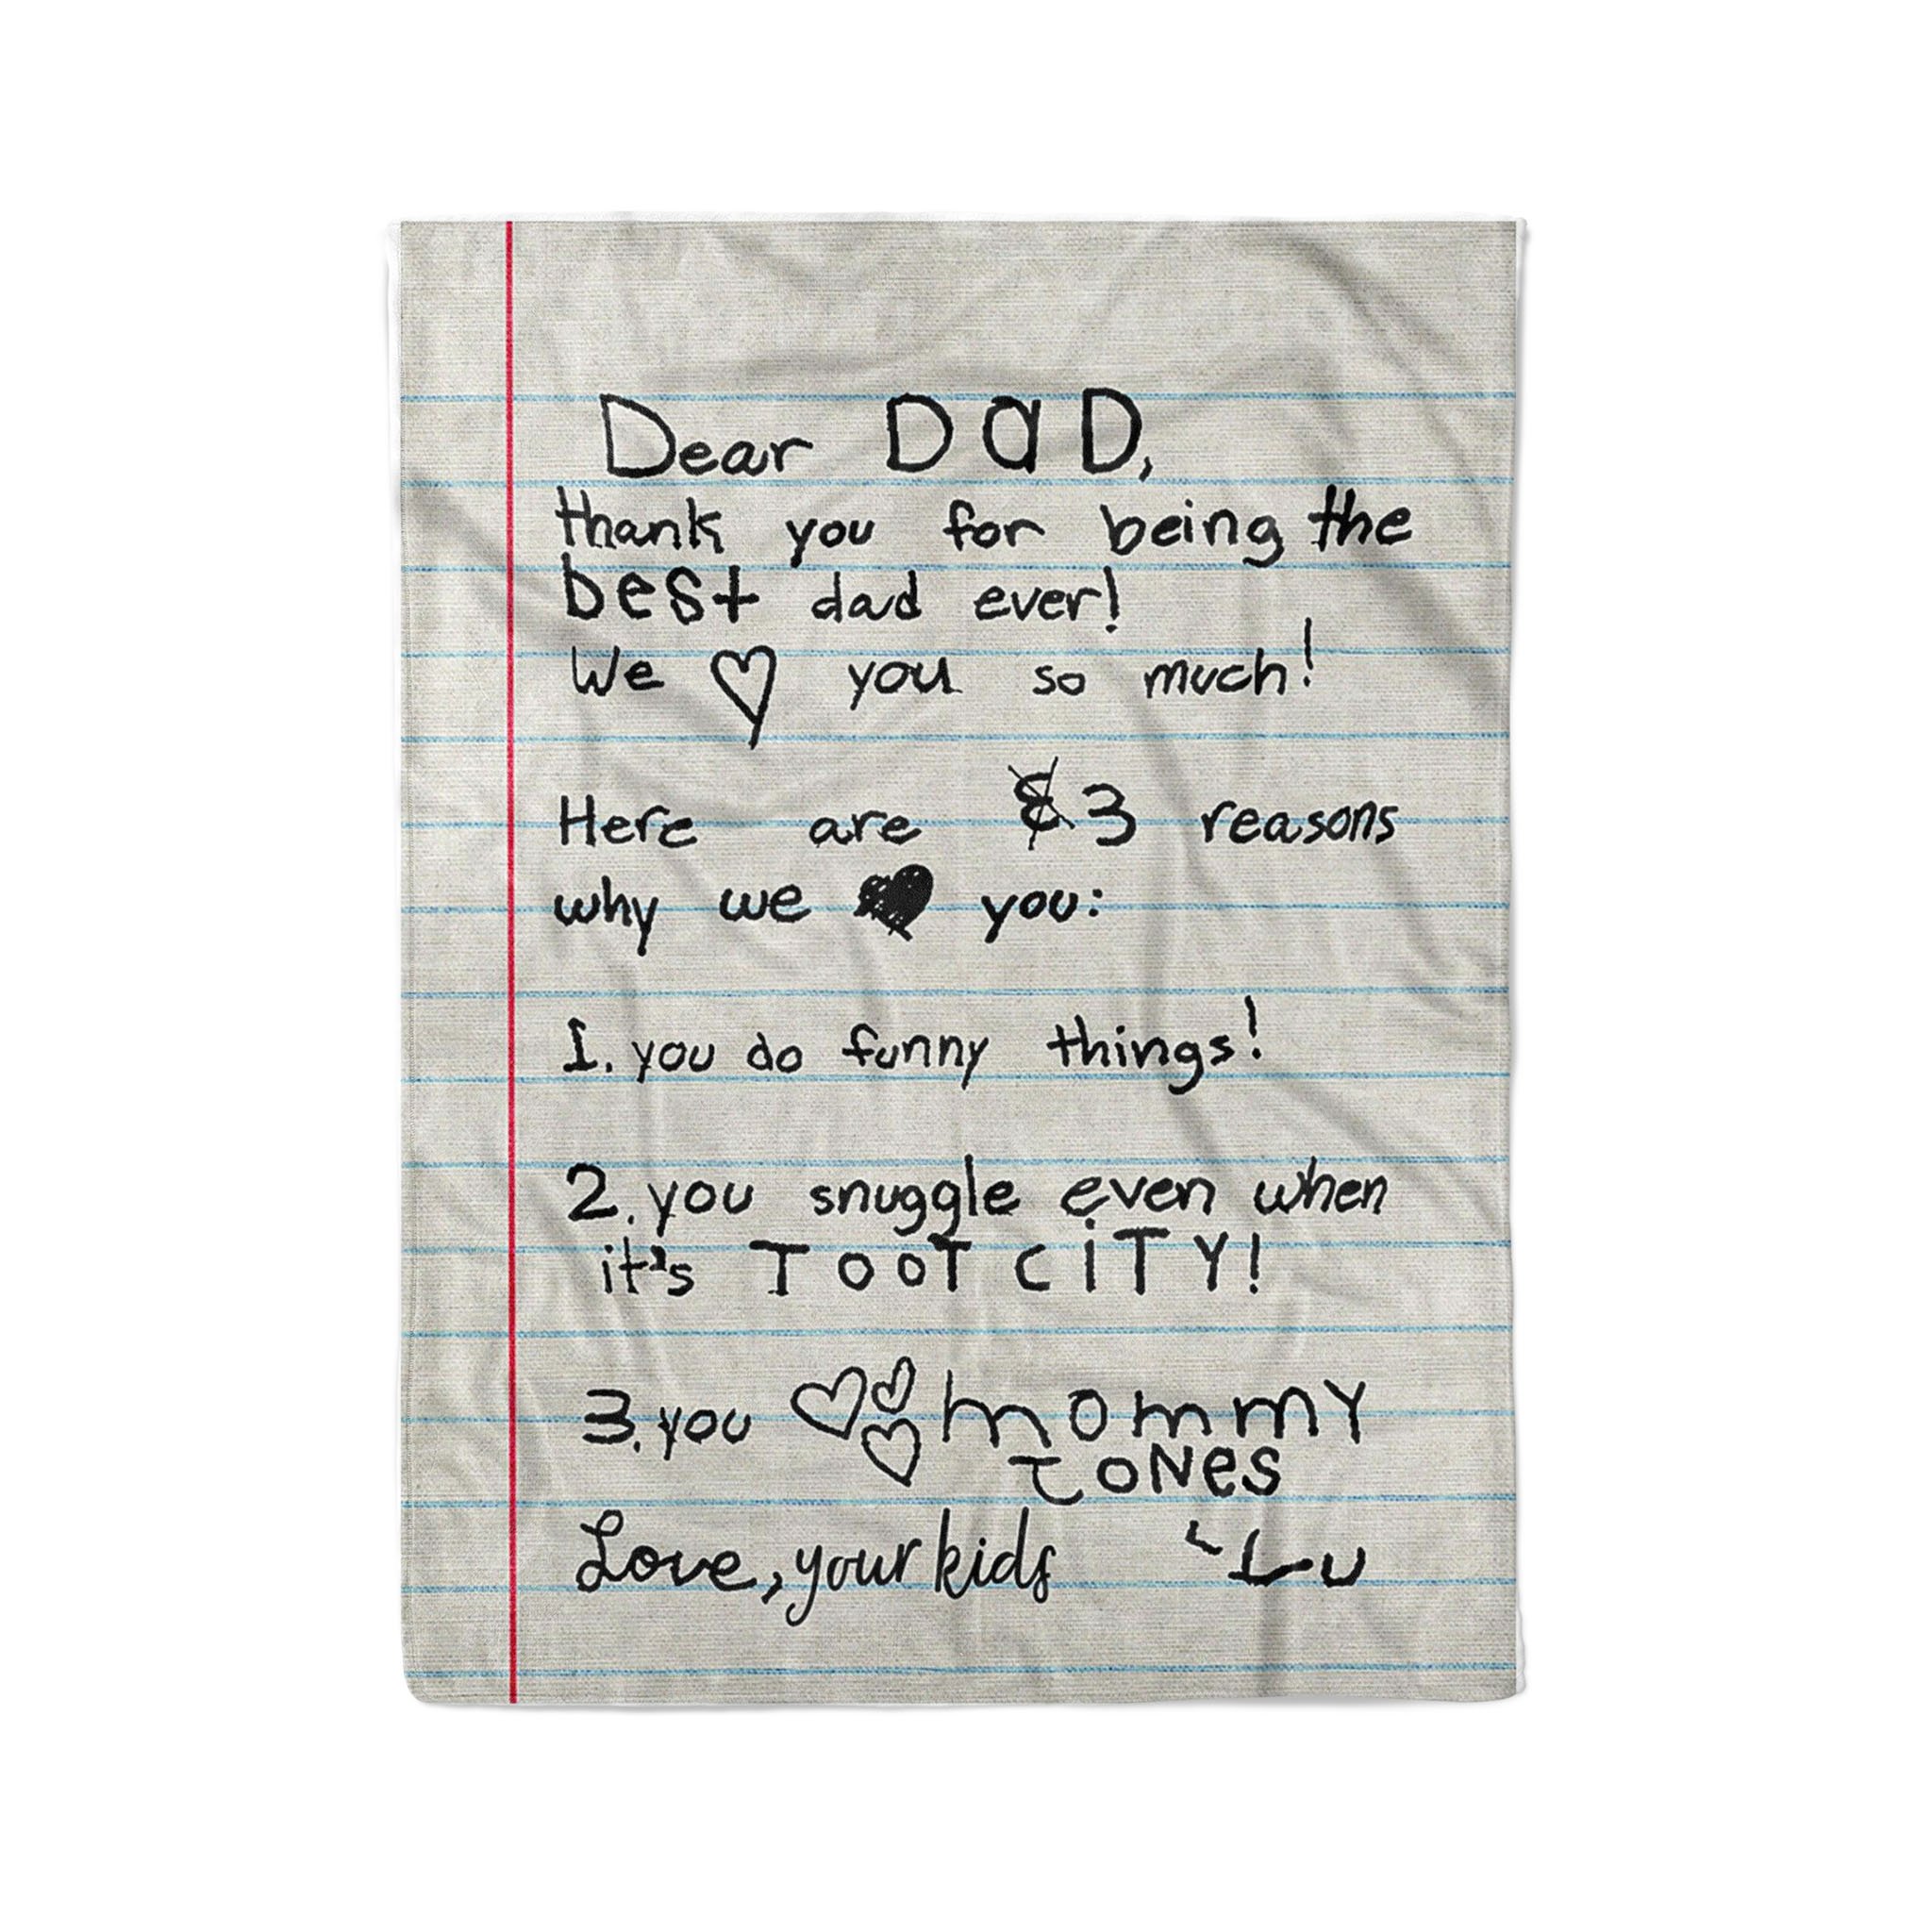 Dear DaD,
thank you for being the
best dad ever!
We ♡ you so much!
Here are 3 reasons
why we ♥ you:
1. you do funny things!
2. you snuggle even when
it's TOOT CiTY!
3. you ♡♡♡ mommy
TONes
Love, your kids Lu